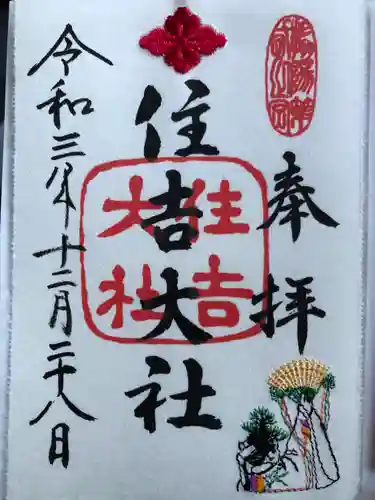 奉拝
住吉大社
住吉
大社
令和三年十二月二十八日